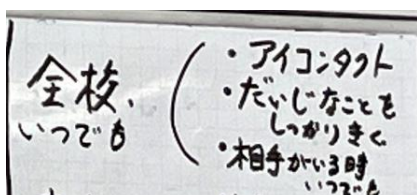 全校、
いつでも
・アイコンタクト
・だいじなことを
しっかりきく
・相手がいる時
いつでも